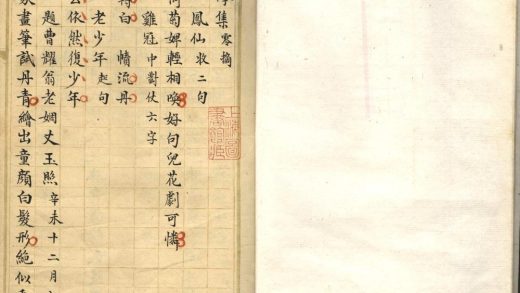 集零摘
鳳仙妝二句
菊婢輕相喚好句兒花劇可憐
雞冠中對仗六字
白 幡流丹
老少年起句
依然復少年
題曹耀翁老姻丈玉照 辛未十二月
畫筆試丹青繪出童顏白髮形絶似
上海圖書館藏